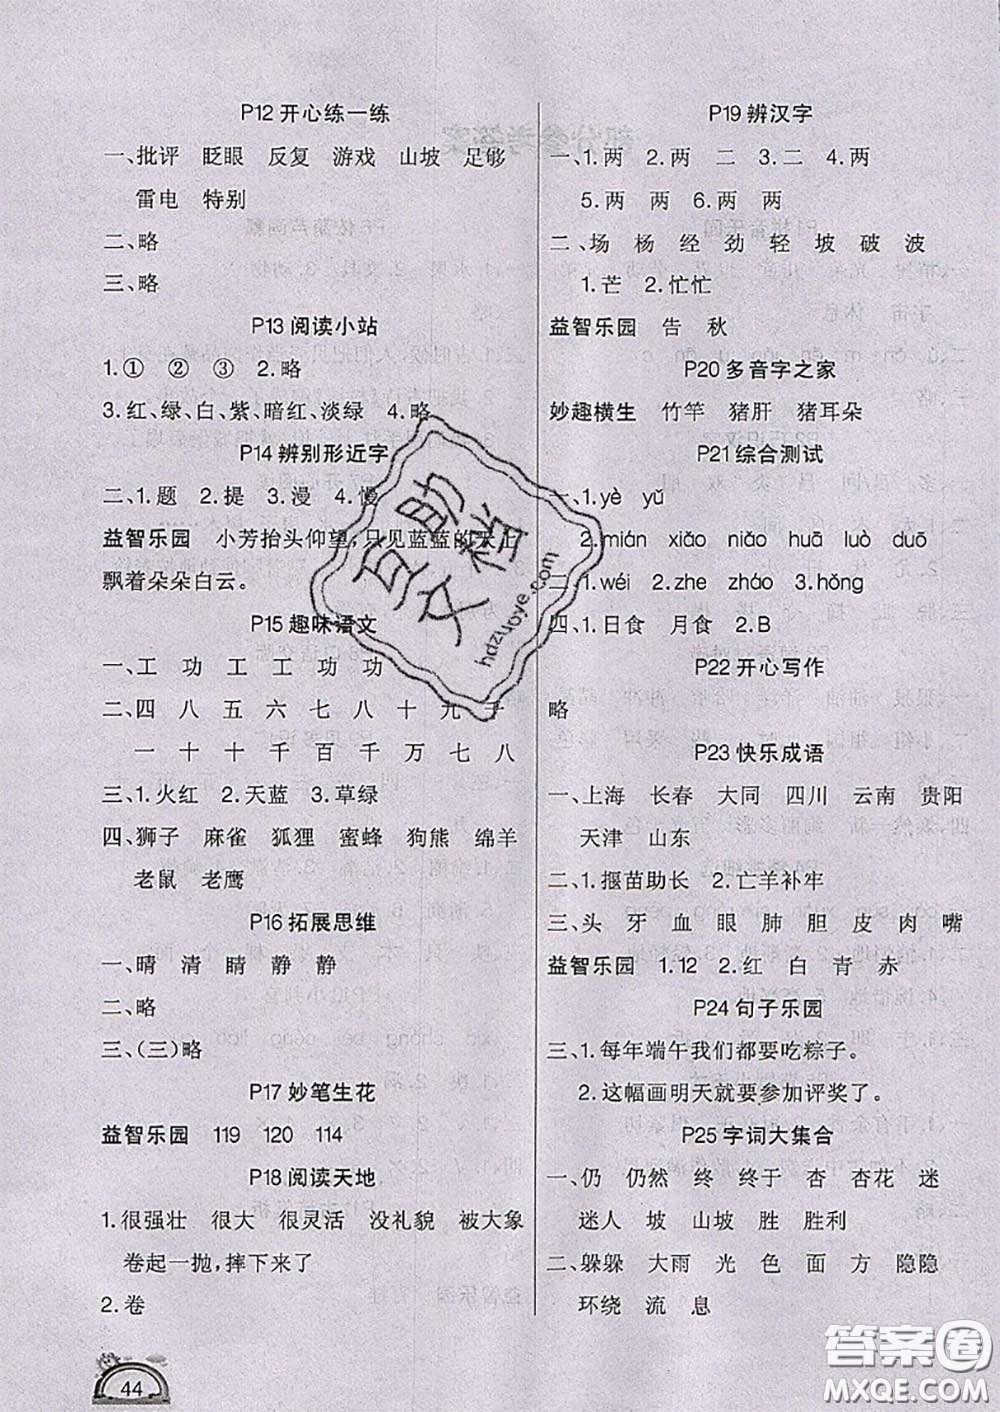 P12 开心练一练
一、批评 眨眼 反复 游戏 山坡 足够
雷电 特别
二、略
三、略
P13 阅读小站
1.① ② ③ 2.略
3.红、绿、白、紫、暗红、淡绿 4.略
P14 辨别形近字
二、1.题 2.提 3.漫 4.慢
益智乐园 小芳抬头仰望,只见蓝蓝的天上
飘着朵朵白云。
P15 趣味语文
一、工 功 工 工 功 功
二、四 八 五 六 七 八 十 九 千
一 十 十 千 百 千 万 七 八
三、1.火红 2.天蓝 3.草绿
四、狮子 麻雀 狐狸 蜜蜂 狗熊 绵羊
老鼠 老鹰
P16 拓展思维
一、晴 清 睛 静 静
二、略
三、(三)略
P17 妙笔生花
益智乐园 119 120 114
P18 阅读天地
1.很强壮 很大 很灵活 没礼貌 被大象
卷起一抛,摔下来了
2.卷
44
P19 辨汉字
一、1.两 2.两 二 3.二 4.两
5.两 两 6.两 两
二、场 杨 经 劲 轻 坡 破 波
1.芒 2.忙忙
益智乐园 告 秋
P20 多音字之家
妙趣横生 竹竿 猪肝 猪耳朵
P21 综合测试
一、1.yè yǔ
2.mián xiǎo niǎo huā luò duō
二、1.wéi 2.zhe zháo 3.hǒng
四、1.日食 月食 2.B
P22 开心写作
略
P23 快乐成语
一、上海 长春 大同 四川 云南 贵阳
天津 山东
二、1.揠苗助长 2.亡羊补牢
三、头 牙 血 眼 肺 胆 皮 肉 嘴
益智乐园 1.12 2.红 白 青 赤
P24 句子乐园
三、1.每年端午我们都要吃粽子。
2.这幅画明天就要参加评奖了。
P25 字词大集合
一、仍 仍然 终 终于 杏 杏花 迷
迷人 坡 山坡 胜 胜利
二、躲躲 大雨 光 色 面 方 隐隐
环绕 流 息
hdzuoye.com
答案圈
MXQE.COM